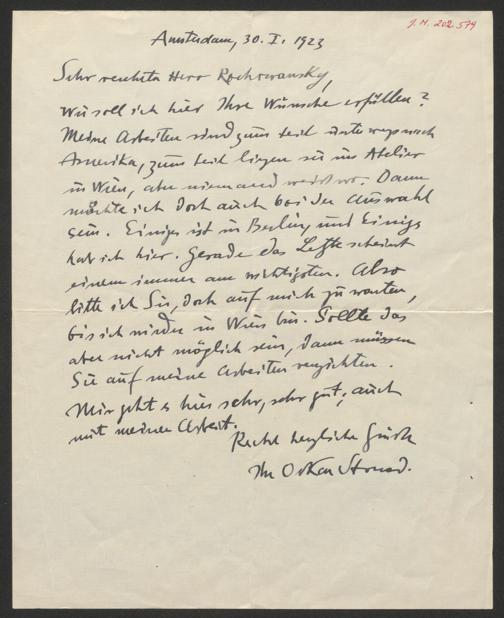 J.N. 202.579
Amsterdam, 30. I. 1923
Sehr verehrter Herr Rochowansky,
Wie soll ich hier Ihre Wünsche erfüllen?
Meine Arbeiten sind zum teil unterwegs nach
Amerika, zum teil liegen sie im Atelier
in Wien, aber niemand weiß wo. Dann
möchte ich doch auch bei der Auswahl
sein. Einiges ist in Berlin, und Einiges
hab ich hier. Gerade das Letzte scheint
einem immer am wichtigsten. Also
bitte ich Sie, doch auf mich zu warten,
bis ich wieder in Wien bin. Sollte das
aber nicht möglich sein, dann müssen
Sie auf meine Arbeiten verzichten.
Mir geht es hier sehr, sehr gut, auch
mit meiner Arbeit.
Recht herzliche Grüße
Ihr Oskar Strnad.